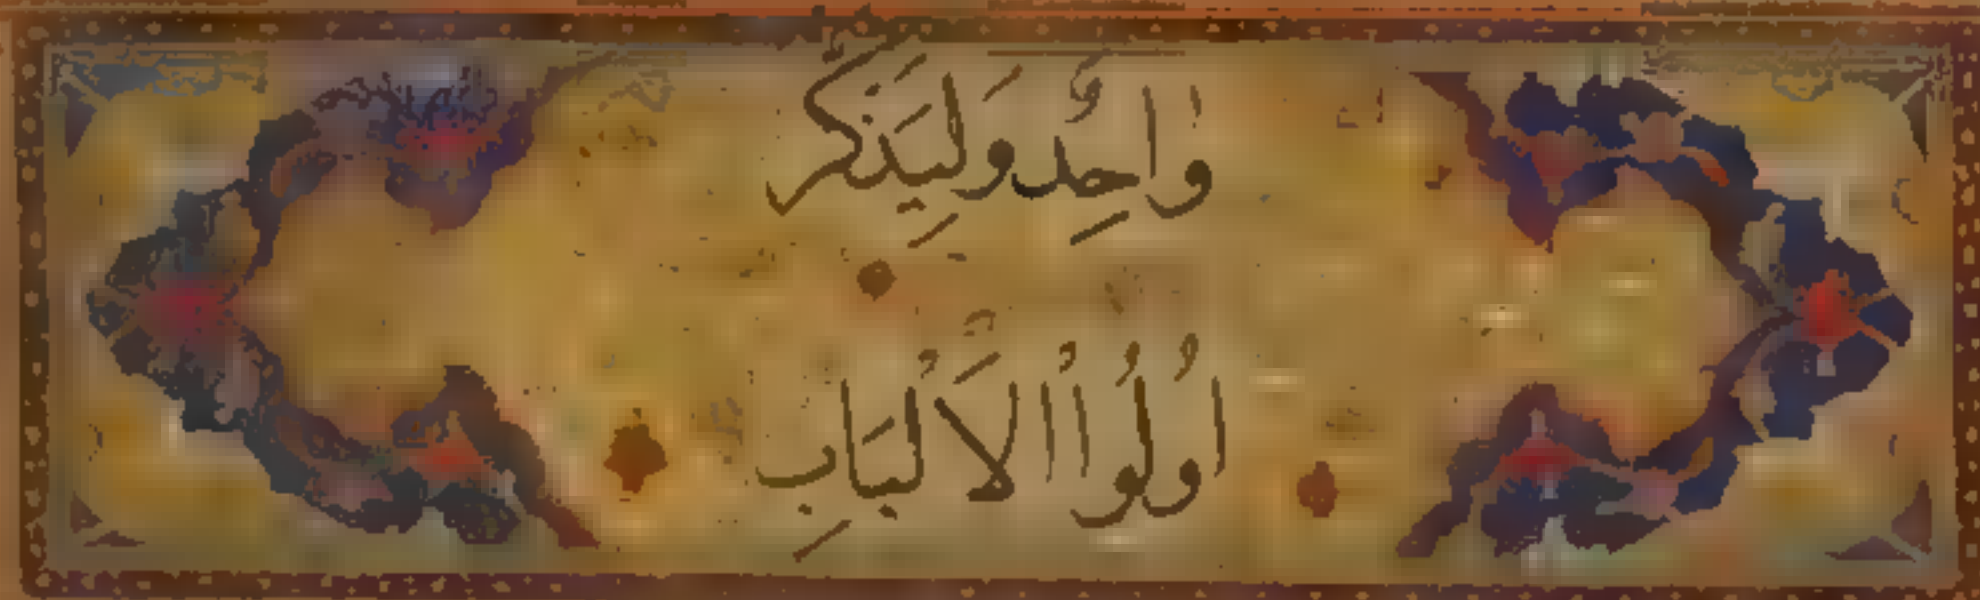 وَاحِدٌ وَلِيَذَّكَّرَ
أُولُوا الْأَلْبَابِ